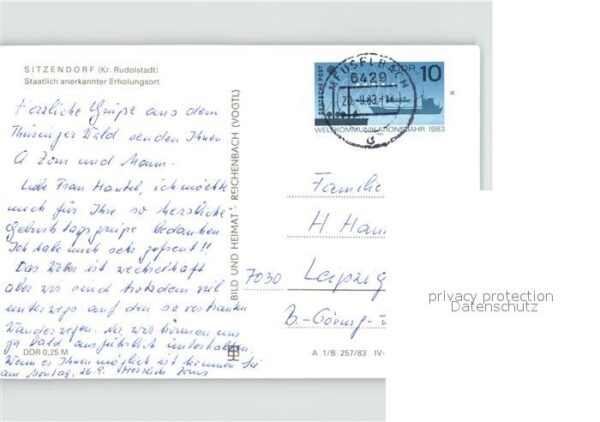 SITZENDORF (Kr. Rudolstadt)
Staatlich anerkannter Erholungsort
Herzliche Grüße aus dem
Thüringer Wald senden Ihnen
A. Zorn und Mann.
Liebe Frau Hantel, ich möchte
mich für Ihre so herzliche
Geburtstagsgrüße bedanken
Ich habe mich sehr gefreut!!
Das Wetter ist wechselhaft
aber wir sind trotzdem viel
unterwegs auf den so
Wanderwegen. Na, wir können uns
ja bald ausführlich unterhalten.
Wenn es Ihnen möglich ist kommen Sie
am Montag, 26.9. Herzlichst Zorns
DDR 0,25 M
BILD UND HEIMAT · REICHENBACH (VOGTL)
MEUSELBACH
6429
83
DEUTSCHE POST
DDR 10
WELTKOMMUNIKATIONSJAHR 1983
Familie
H. Han
7030 Leipzig
B.-Göring-
A 1/B 257/83 IV-
privacy protection
Datenschutz